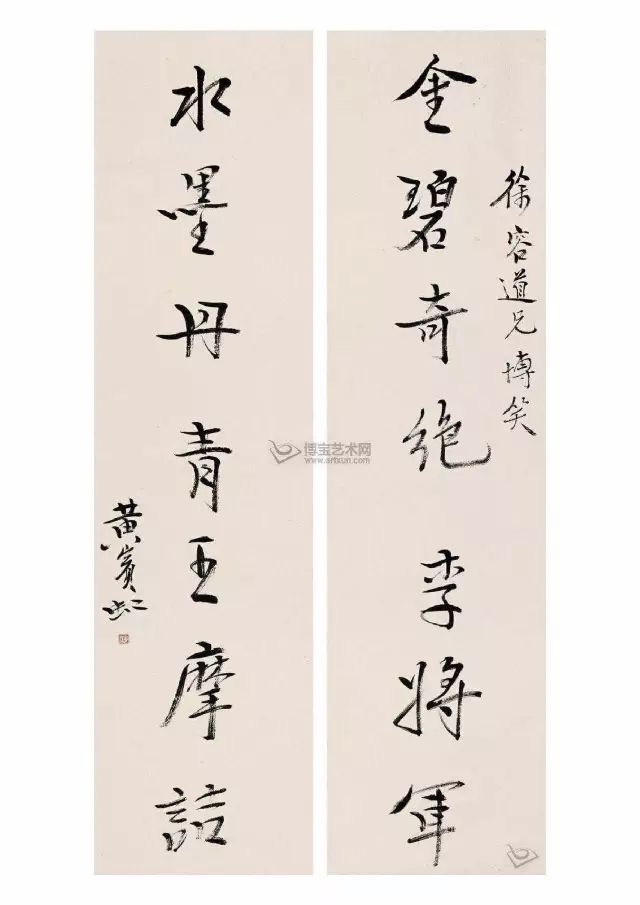 徐容道兄博笑
金碧奇绝李將軍
水墨丹青王摩詰
黃賓虹
博宝艺术网
www.artxun.com